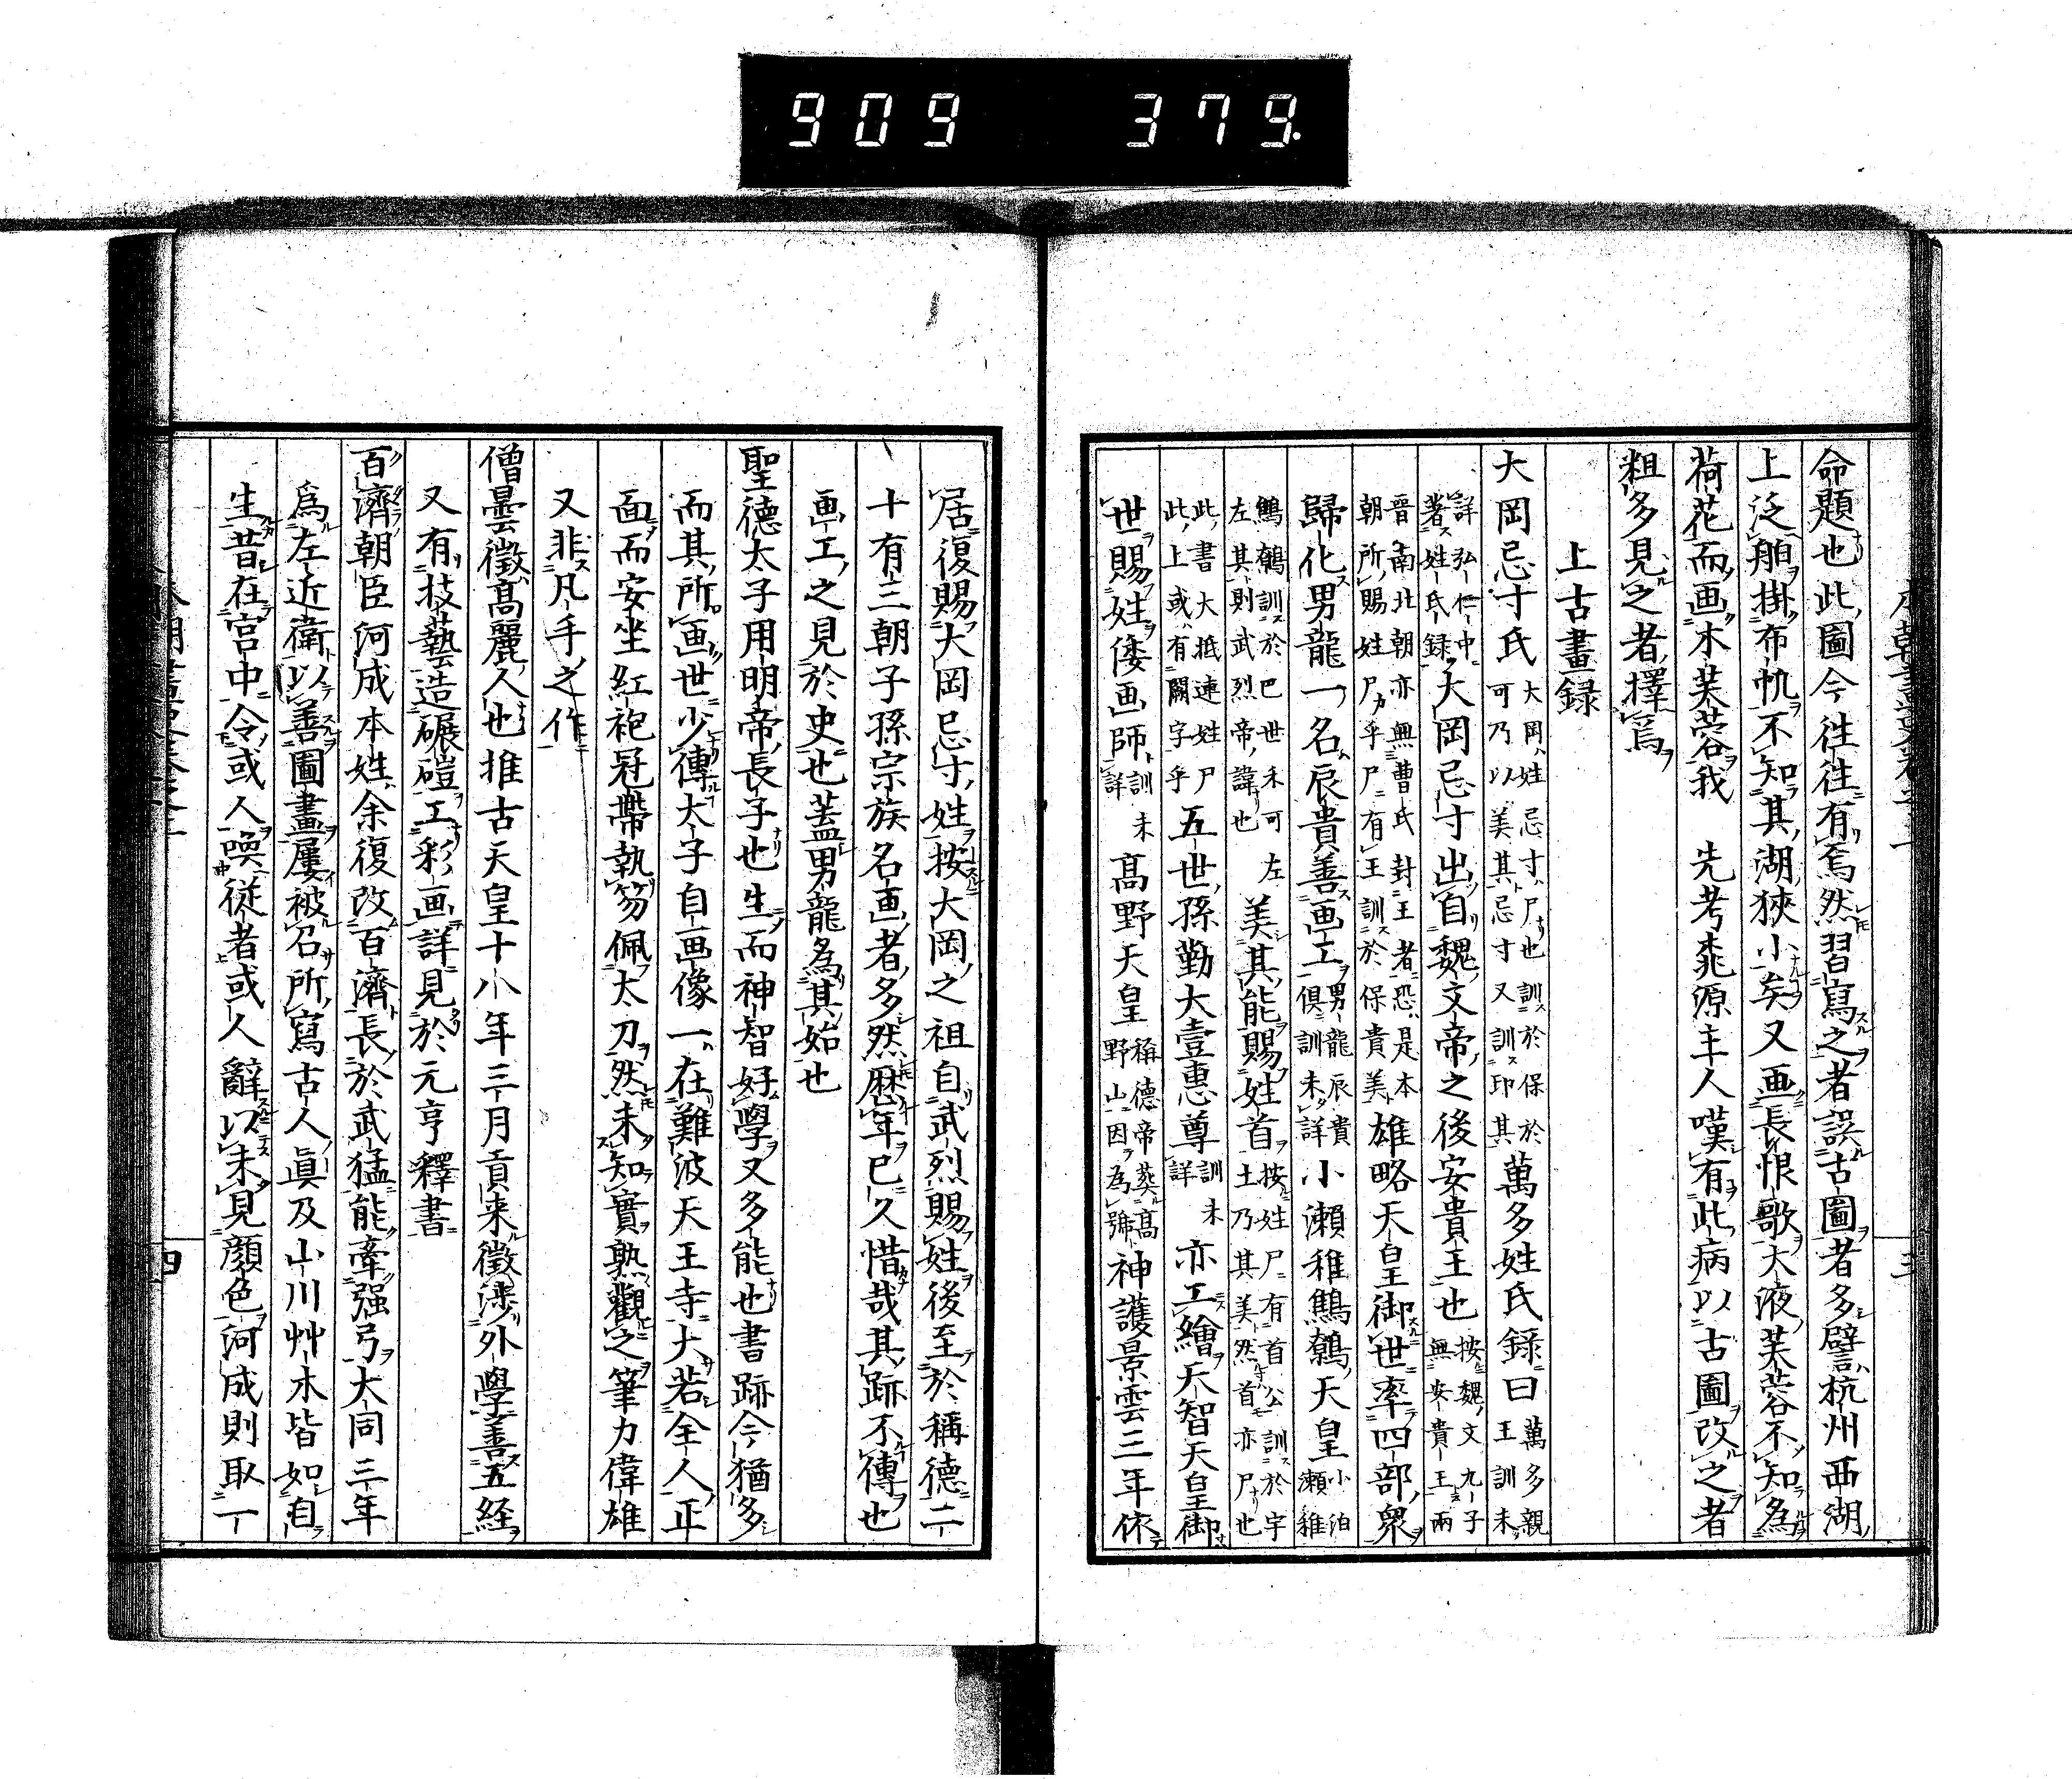 909 379.
命題也此圖今徃徃有焉然習寫之者誤古圖者多譬杭州西湖
上泛舶掛布帆不知其湖狹小矣又画長恨歌大液芙蓉不知為
荷花而画木芙蓉我 先考桃源主人嘆有此病以古圖改之者
粗多見之者擇焉
上古畫録
大岡忌寸氏 大岡姓忌寸尸也訓於保於可乃以美其忌寸又訓印其 萬多姓氏録曰 萬多親王訓未
詳弘仁中著姓氏録 大岡忌寸出自魏文帝之後安貴王也 按魏文九子無安貴王兩
晋南北朝亦無曹氏封王者恐是本朝所賜姓尸乎尸有王訓於保貴美 雄略天皇御世率四部衆
歸化男龍一名辰貴善画工 男龍辰貴倶訓未詳 小瀬稚鷦鷯天皇 小泊瀬稚
鷦鷯訓於巴世未可左左其則武烈帝諱也 美其能賜姓首 按姓尸有首公訓於宇土乃其美然首亦尸也
此書大抵連姓尸此上或有闕字乎 五世孫勤大壹惠尊 訓未詳 亦工繪天智天皇御
世賜姓倭画師 訓未詳 高野天皇 稱德帝葬高野山因為號 神護景雲三年依
居復賜大岡忌寸姓按大岡之祖自武烈賜姓後至於稱德二
十有三朝子孫宗族名画者多然歴年已久惜哉其跡不傳也
画工之見於史也蓋男龍為其始也
聖德太子用明帝長子也生而神智好學又多能也書跡今猶多
而其所画世少傳太子自画像一在難波天王寺大若全人正
面而安坐紅袍冠帶執笏佩太刀然未知實熟觀之筆力偉雄
又非凡手之作
僧曇徵高麗人也推古天皇十八年三月貢来徵渉外學善五経
又有技藝造碾磑工彩画詳見於元亨釋書
百濟朝臣河成本姓余復改百濟長於武猛能牽强弓大同三年
為左近衛以善圖畫屢被召所寫古人眞及山川艸木皆如自
生昔在宮中令或人喚從者或人辭以未見顔色河成則取一
四